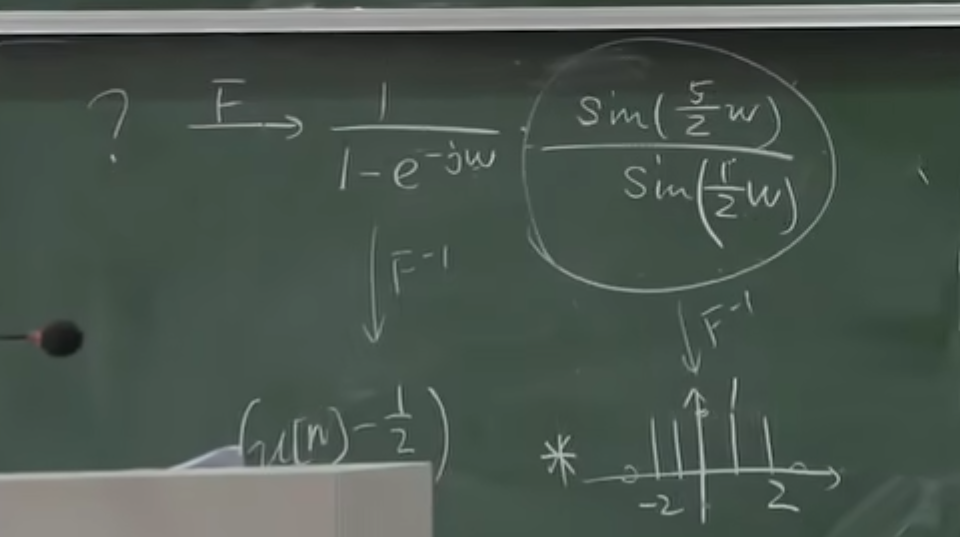 ? F → 1 / (1 - e^{-jw}) · sin(5/2 w) / sin(1/2 w)
↓ F^{-1} ↓ F^{-1}
(u[n] - 1/2) *
-2 2